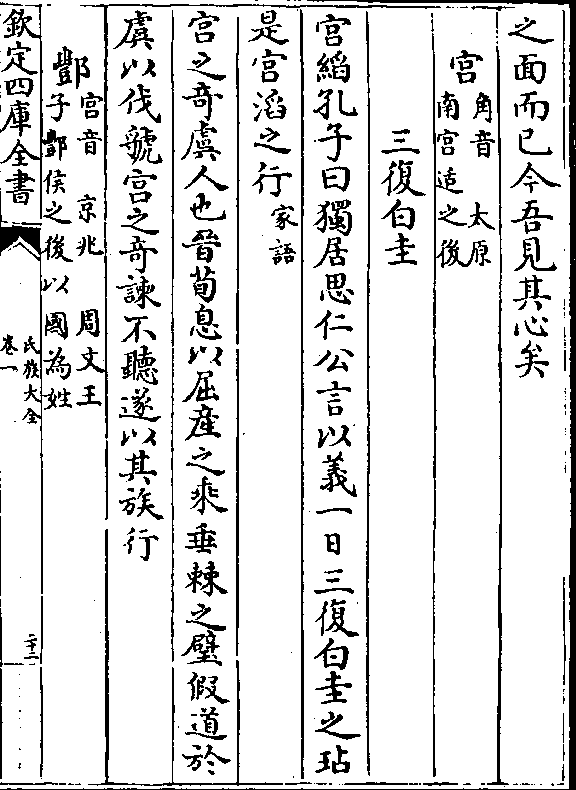 之面而已今吾見其心矣
宮
角音　太原
南宮适之後
三復白圭
宮縚孔子曰獨居思仁公言以義一日三復白圭之玷
是宮滔之行家語
宮之奇虞人也晉荀息以屈産之乘垂棘之璧假道於
虞以伐虢宮之奇諫不聽遂以其族行
酆
宮音　京兆　周文王
子酆侯之後以國為姓
欽定四庫全書
氏族大全
卷一
二十二